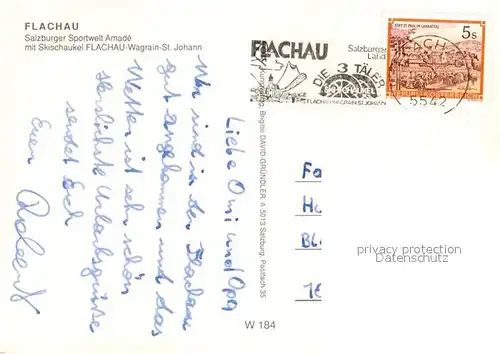 FLACHAU
Salzburger Sportwelt Amadé
mit Skischaukel FLACHAU-Wagrain-St. Johann
Liebe Omi und Opa
Wir sind in der Flachau
gut angekommen und das
Wetter ist sehr schön
herzlichste Urlaubsgrüsse
sendet Euch
Euer Robert
Brigitte DAVID-GRÜNDLER, A 5013 Salzburg, Postfach 35
W 184
FLACHAU
Salzburger
Land
DIE 3 TÄLER
SKISCHAUKEL
FLACHAU WAGRAIN ST. JOHANN
5542
STIFT ST. PAUL IM LAVANTTAL
5s
Fa
H
Bl
privacy protection
Datenschutz